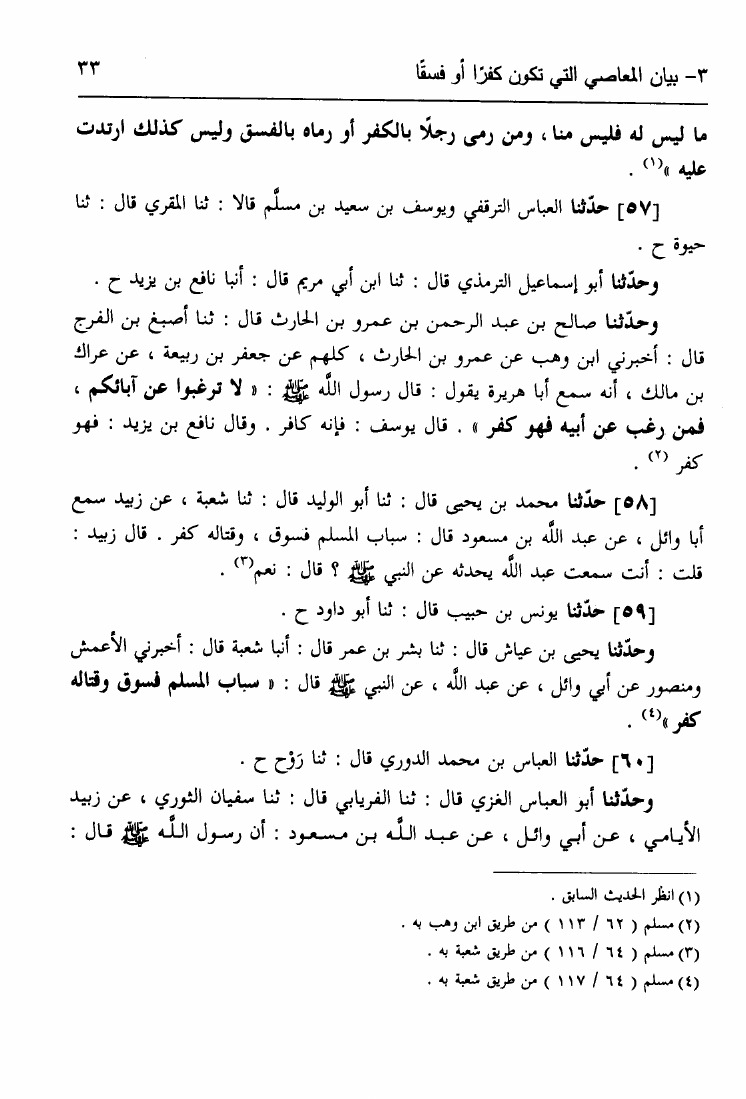 ٣- بيان المعاصي التي تكون كفرًا أو فسقًا ٣٣
ما ليس له فليس منا ، ومن رمى رجلًا بالكفر أو رماه بالفسق وليس كذلك ارتدت
عليه »(١) .
[٥٧] حدّثنا العباس الترقفي ويوسف بن سعيد بن مسلَّم قالا : ثنا المقري قال : ثنا
حيوة ح .
وحدّثنا أبو إسماعيل الترمذي قال : ثنا ابن أبي مريم قال : أنبا نافع بن يزيد ح .
وحدّثنا صالح بن عبد الرحمن بن عمرو بن الحارث قال : ثنا أصبغ بن الفرج
قال : أخبرني ابن وهب عن عمرو بن الحارث ، كلهم عن جعفر بن ربيعة ، عن عراك
بن مالك ، أنه سمع أبا هريرة يقول : قال رسول اللَّه ﷺ : « لا ترغبوا عن آبائكم ،
فمن رغب عن أبيه فهو كفر » . قال يوسف : فإنه كافر . وقال نافع بن يزيد : فهو
كفر (٢) .
[٥٨] حدّثنا محمد بن يحيى قال : ثنا أبو الوليد قال : ثنا شعبة ، عن زبيد سمع
أبا وائل ، عن عبد اللَّه بن مسعود قال : سباب المسلم فسوق ، وقتاله كفر . قال زبيد :
قلت : أنت سمعت عبد اللَّه يحدثه عن النبي ﷺ ؟ قال : نعم(٣) .
[٥٩] حدّثنا يونس بن حبيب قال : ثنا أبو داود ح .
وحدّثنا يحيى بن عياش قال : ثنا بشر بن عمر قال : أنبا شعبة قال : أخبرني الأعمش
ومنصور عن أبي وائل ، عن عبد اللَّه ، عن النبي ﷺ قال : « سباب المسلم فسوق وقتاله
كفر »(٤) .
[٦٠] حدّثنا العباس بن محمد الدوري قال : ثنا رَوْح ح .
وحدّثنا أبو العباس الغزي قال : ثنا الفريابي قال : ثنا سفيان الثوري ، عن زبيد
الأيامي ، عن أبي وائل ، عن عبد اللَّه بن مسعود : أن رسول اللَّه ﷺ قال :
(١) انظر الحديث السابق .
(٢) مسلم ( ٦٢ / ١١٣ ) من طريق ابن وهب به .
(٣) مسلم ( ٦٤ / ١١٦ ) من طريق شعبة به .
(٤) مسلم ( ٦٤ / ١١٧ ) من طريق شعبة به .